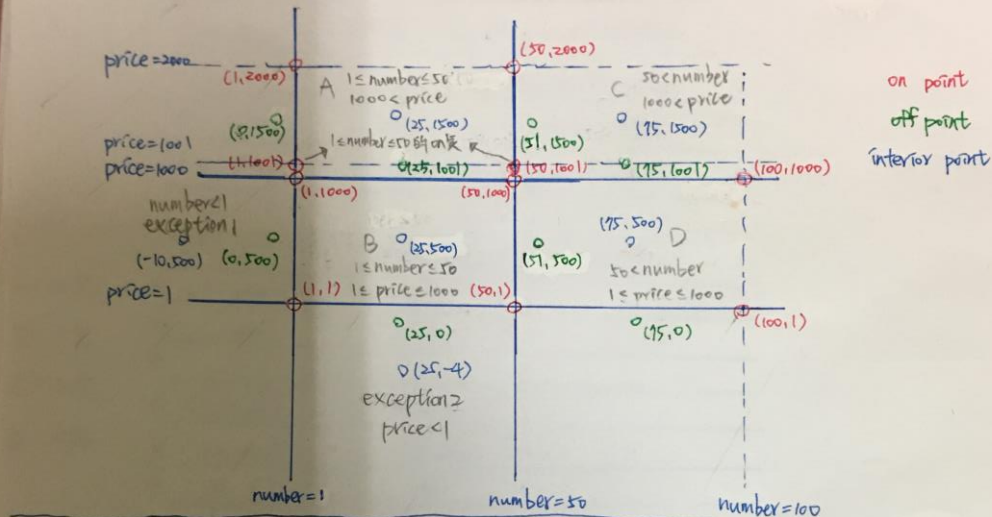 price=2000
(1,2000)
(50,2000)
A
1≤number≤50
1000<price
C
50<number
1000<price
on point
off point
interior point
(0,1500)
(25,1500)
(51,1500)
(75,1500)
price=1001
1≤number≤50的on点
price=1000
(1,1001)
(25,1001)
(50,1001)
(75,1001)
(100,1000)
(1,1000)
(50,1000)
number<1
exception1
(-10,500)
(0,500)
B
(25,500)
1≤number≤50
1≤price≤1000
(51,500)
(75,500)
D
50<number
1≤price≤1000
price=1
(1,1)
(50,1)
(100,1)
(25,0)
(75,0)
(25,-4)
exception2
price<1
number=1
number=50
number=100